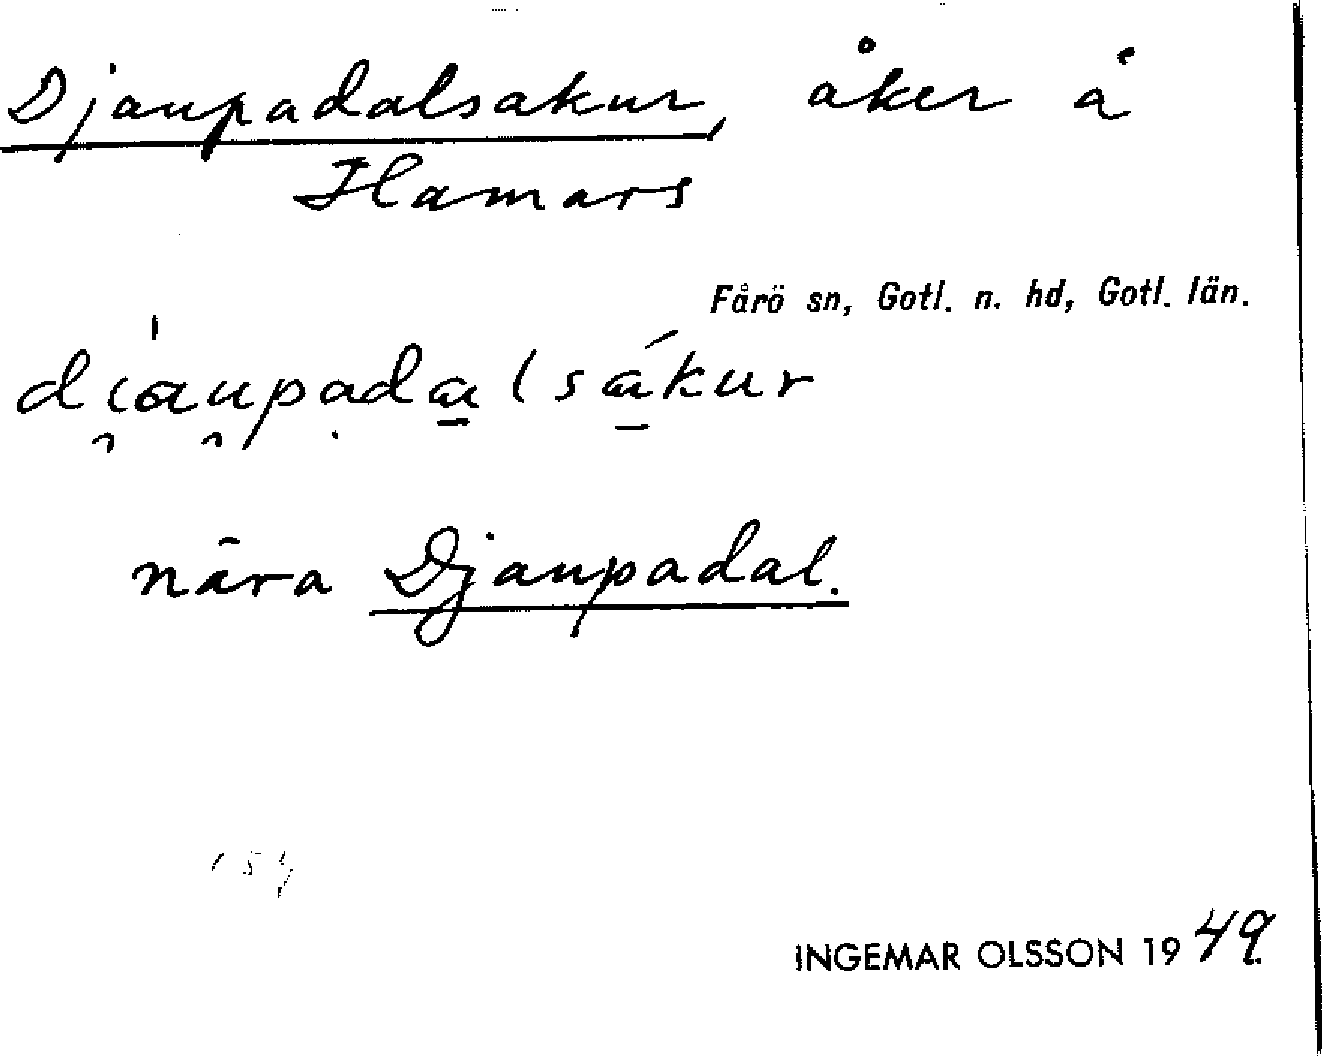 Djaupadalsakur, åker å
Hamars
Fårö sn, Gotl. n. hd, Gotl. län.
di̯àu̯pạda̱lsa̱ ́kur
nära Djaupadal.
154
INGEMAR OLSSON 1949